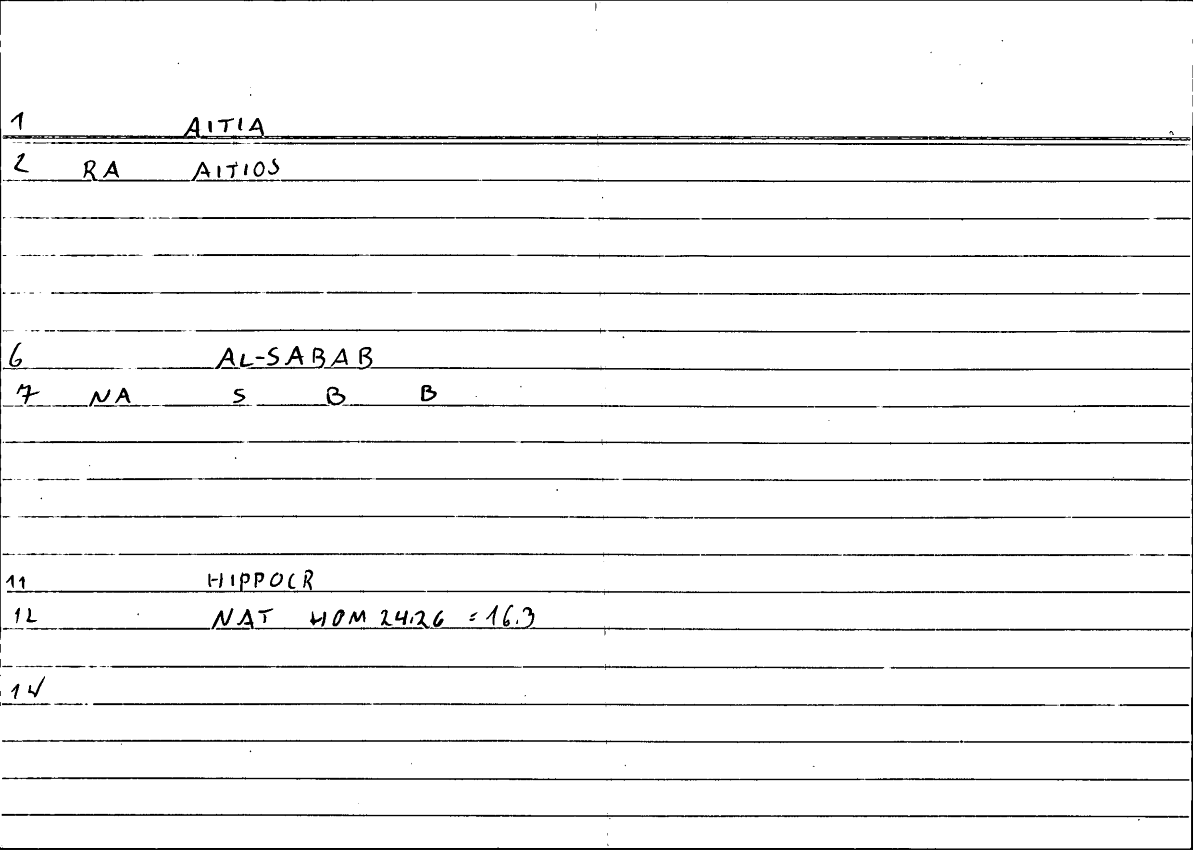 1 AITIA
2 RA AITIOS
6 AL-SABAB
7 NA S B B
11 HIPPOCR
12 NAT HOM 24.26 = 16.3
14